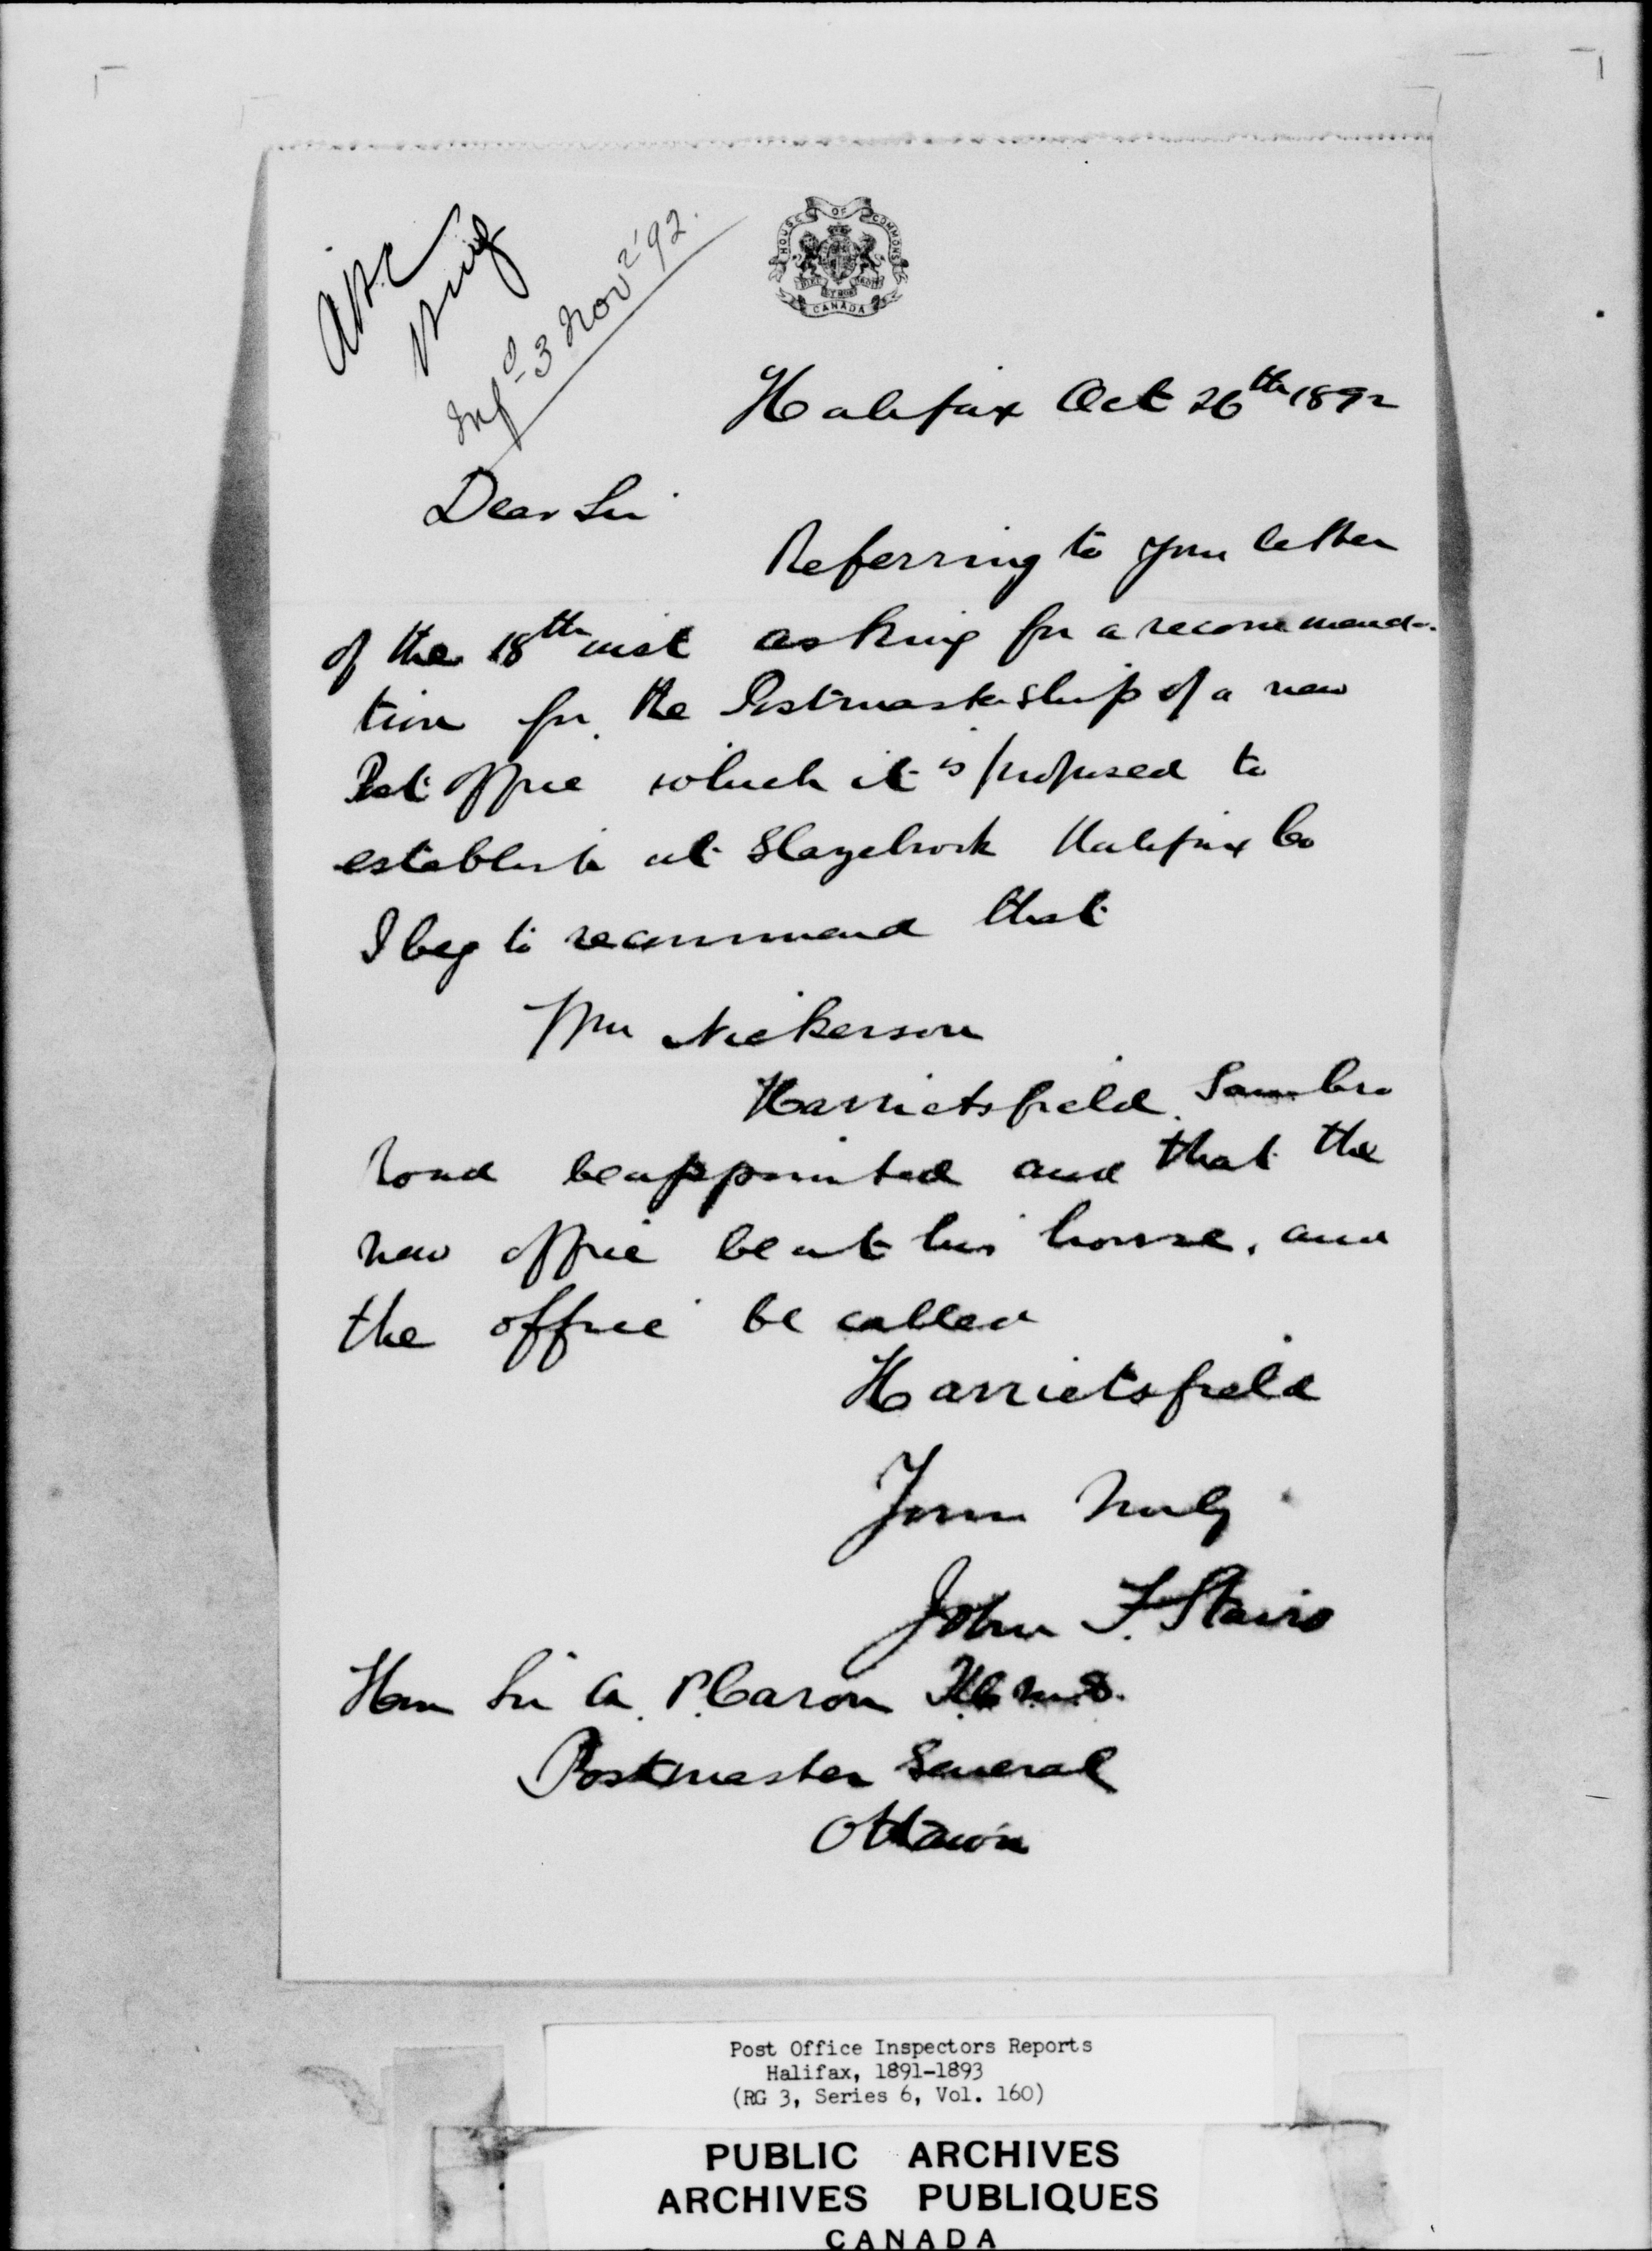 Infd 3 Nov 2 '92.
HOUSE OF COMMONS
CANADA
Halifax Oct 26th 1892
Dear Sir
Referring to your letter
of the 18th inst asking for a recommenda-
tion for the Postmastership of a new
Post office which it is proposed to
establish at Halifax Co
I beg to recommend that
Wm Nickerson
Harrietsfield Sambro
road be appointed and that the
new office be at his house, and
the office be called
Harrietsfield
Yours truly
John F. Stairs
Hon Sir A. P. Caron K.C.M.G.
Postmaster General
Ottawa
Post Office Inspectors Reports
Halifax, 1891-1893
(RG 3, Series 6, Vol. 160)
PUBLIC ARCHIVES
ARCHIVES PUBLIQUES
CANADA